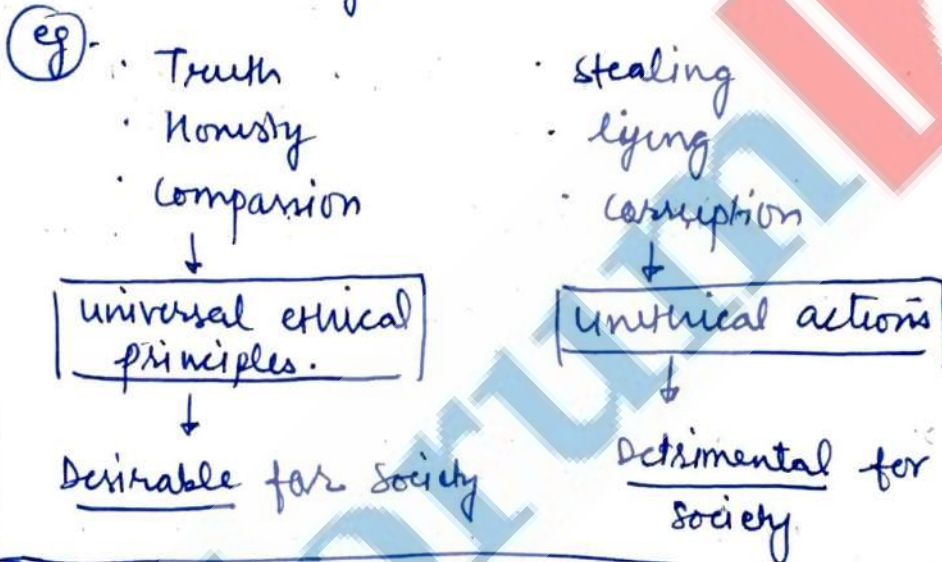 eg.
· Truth
· Honesty
· Compassion
↓
universal ethical
principles.
↓
Desirable for society
· stealing
· lying
· corruption
↓
Unethical actions
↓
Detrimental for
society
orum